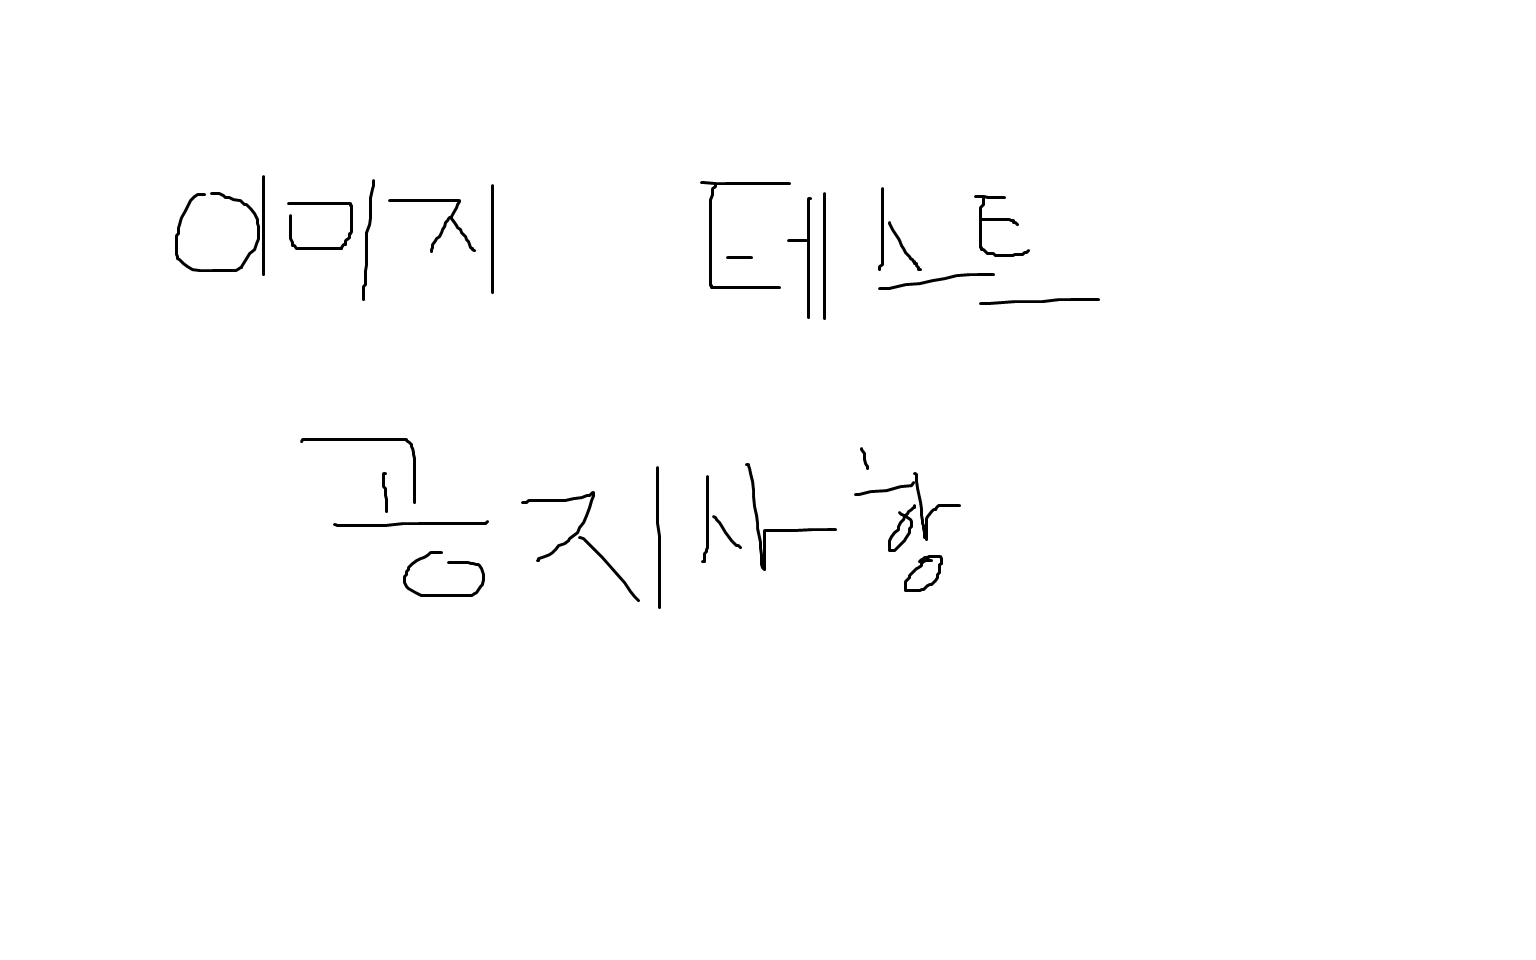 이미지 테스트
공지사항